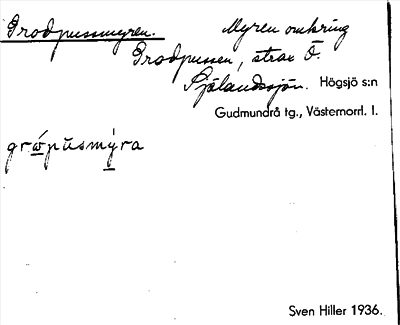 Grodpussmyren. Myren omkring
Grodpussen, strax Ö.
Själandsjön. Högsjö s:n
Gudmundrå tg., Västernorrl. l.
grω̄́pūsmỳ̱ra
Sven Hiller 1936.